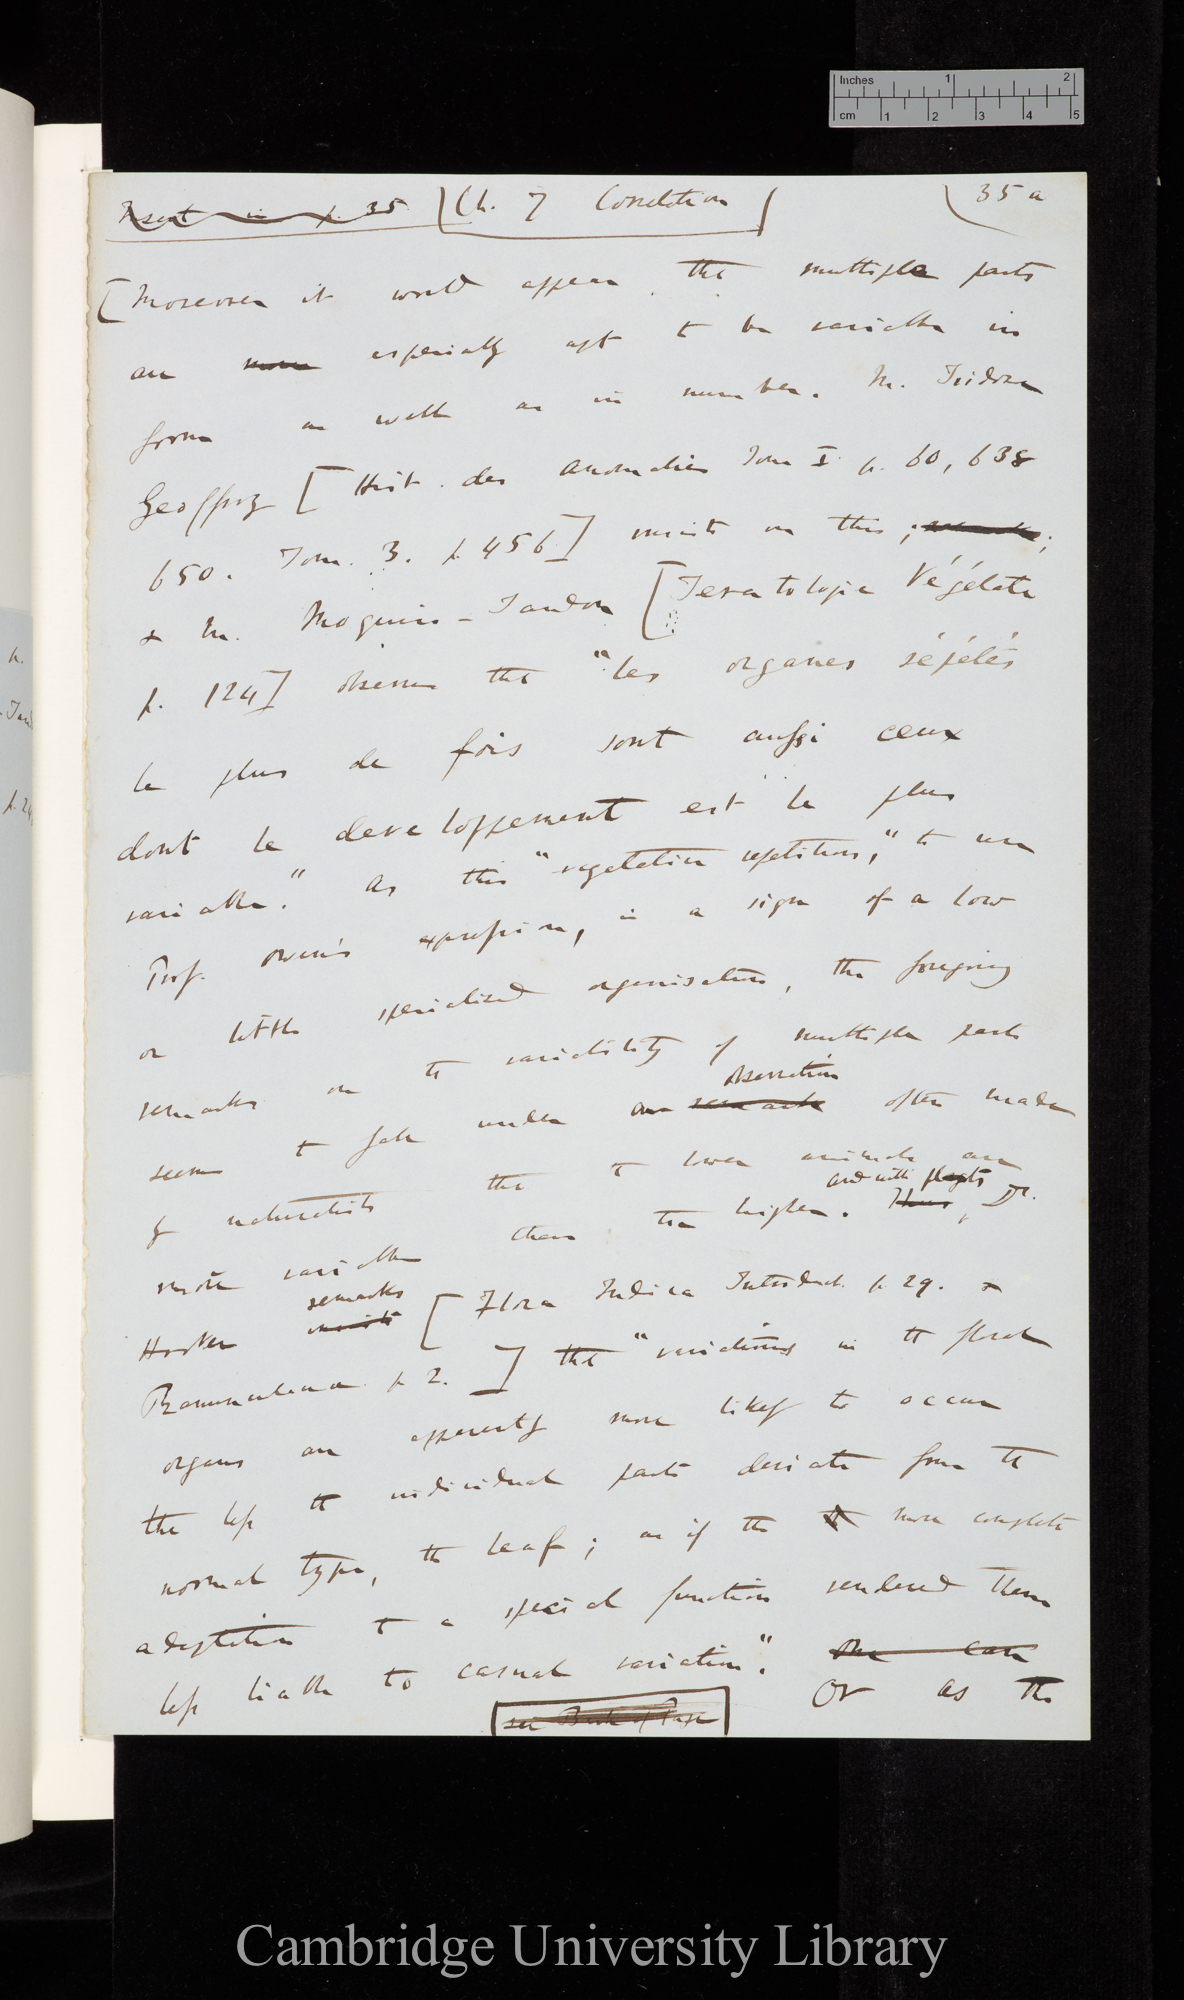 Inches 1 2
cm 1 2 3 4 5
Insert in p. 35 [Ch. 7 Correlation] 35 a
[Moreover it would appear that multiple parts
are more especially apt to be variable in
form as well as in number. M. Isidore
Geoffroy [Hist. des Anomalies Tom I p. 60, 638
650. Tom. 3. p 456] insists on this;
& M. Moquin-Tandon [Teratologie Végétale
p. 124] observes that "les organes répétés
le plus de fois sont aussi ceux
dont le developpement est le plus
variable." As this "vegetative repetition," to use
Prof. Owen's expression, is a sign of a low
or little specialised organisation, the foregoing
remarks on the variability of multiple parts
observation
seem to fall under our remark often made
by naturalists that the lower animals are
and with plants
more variable than the higher. Thus, Dr.
remarks
Hooker insists [Flora Indica Introduct. p. 29. &
Ranunculaceæ p 2.] that "variations in the floral
organs are apparently more likely to occur
the less the individual parts deviate from the
normal type, the leaf; as if the more complete
adaptation to a special function rendered them
less liable to casual variation". One can
see Back of Page Or as the
p.
-Tand
p. 24
Cambridge University Library